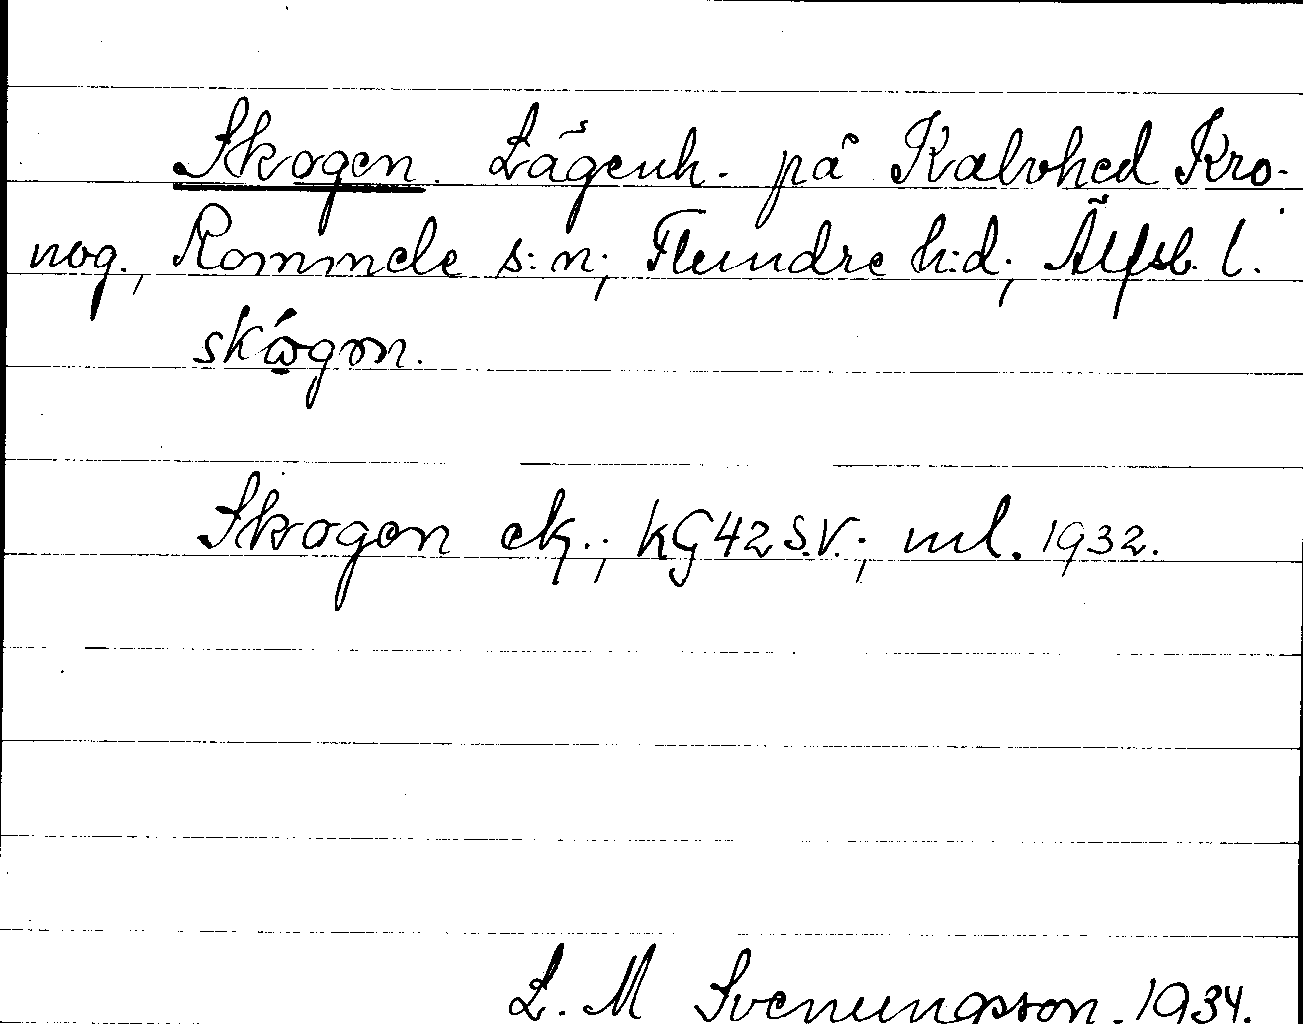 Skogen. Lägenh. på Kalvhed Kro-
nog., Rommele s:n; Flundre h:d; Älfsb. l.
skógon.
Skogen ek.; KG42S.V.; ml. 1932.
L. M Svenungsson. 1934.